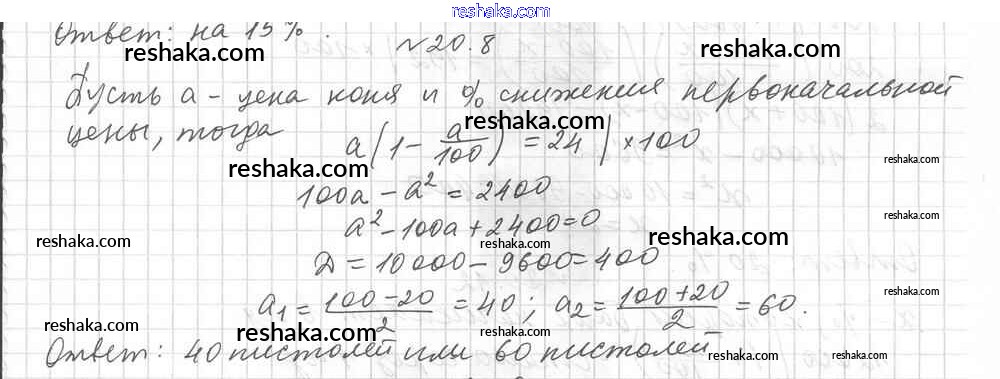 reshaka.com
Ответ: на 15%.
reshaka.com № 20.8 reshaka.com
Пусть a - цена коня и % снижения первоначальной
reshaka.com
цены, тогда a(1 - a/100) = 24 | ×100
reshaka.com reshaka.com
100a - a² = 2400
a² - 100a + 2400 = 0
reshaka.com reshaka.com reshaka.com
Д = 10000 - 9600 = 400
reshaka.com
a₁ = (100 - 20)/2 = 40; a₂ = (100 + 20)/2 = 60.
reshaka.com reshaka.com reshaka.com
Ответ: 40 пистолей или 60 пистолей
reshaka.com reshaka.com